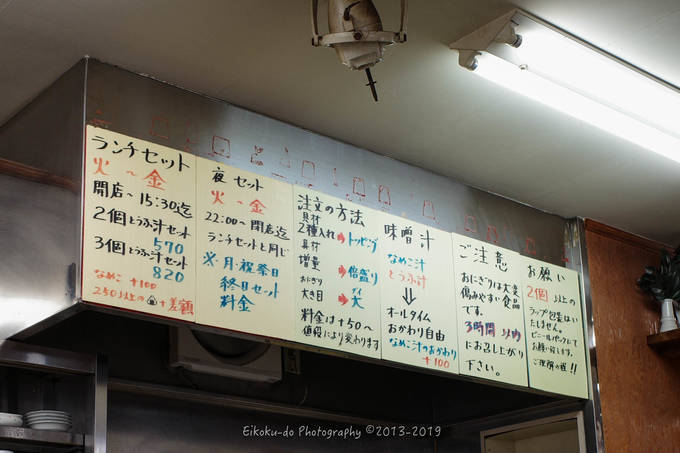 ランチセット
火〜金
開店〜15:30迄
2個とうふ汁セット
570
3個とうふ汁セット
820
なめこ +100
250以上の + 差額
夜セット
火〜金
22:00〜閉店迄
ランチセットと同じ
※月・祝祭日
終日セット
料金
注文の方法
具材
2種入れ→トッピング
具材
増量→倍盛り
おにぎり
大き目→大
ダイ
料金は+50〜
値段により変わります
味噌汁
なめこ汁
とうふ汁
⇓
オールタイム
おかわり自由
なめこ汁のおかわり
+100
ご注意
おにぎりは大変
傷みやすい食品
です。
3時間以内
にお召し上がり
下さい。
お願い
2個以上の
ラップ包装はい
たしません。
ビニールパックにて
お願い致します。
ご理解の程!!
Eikoku-do Photography ©2013-2019